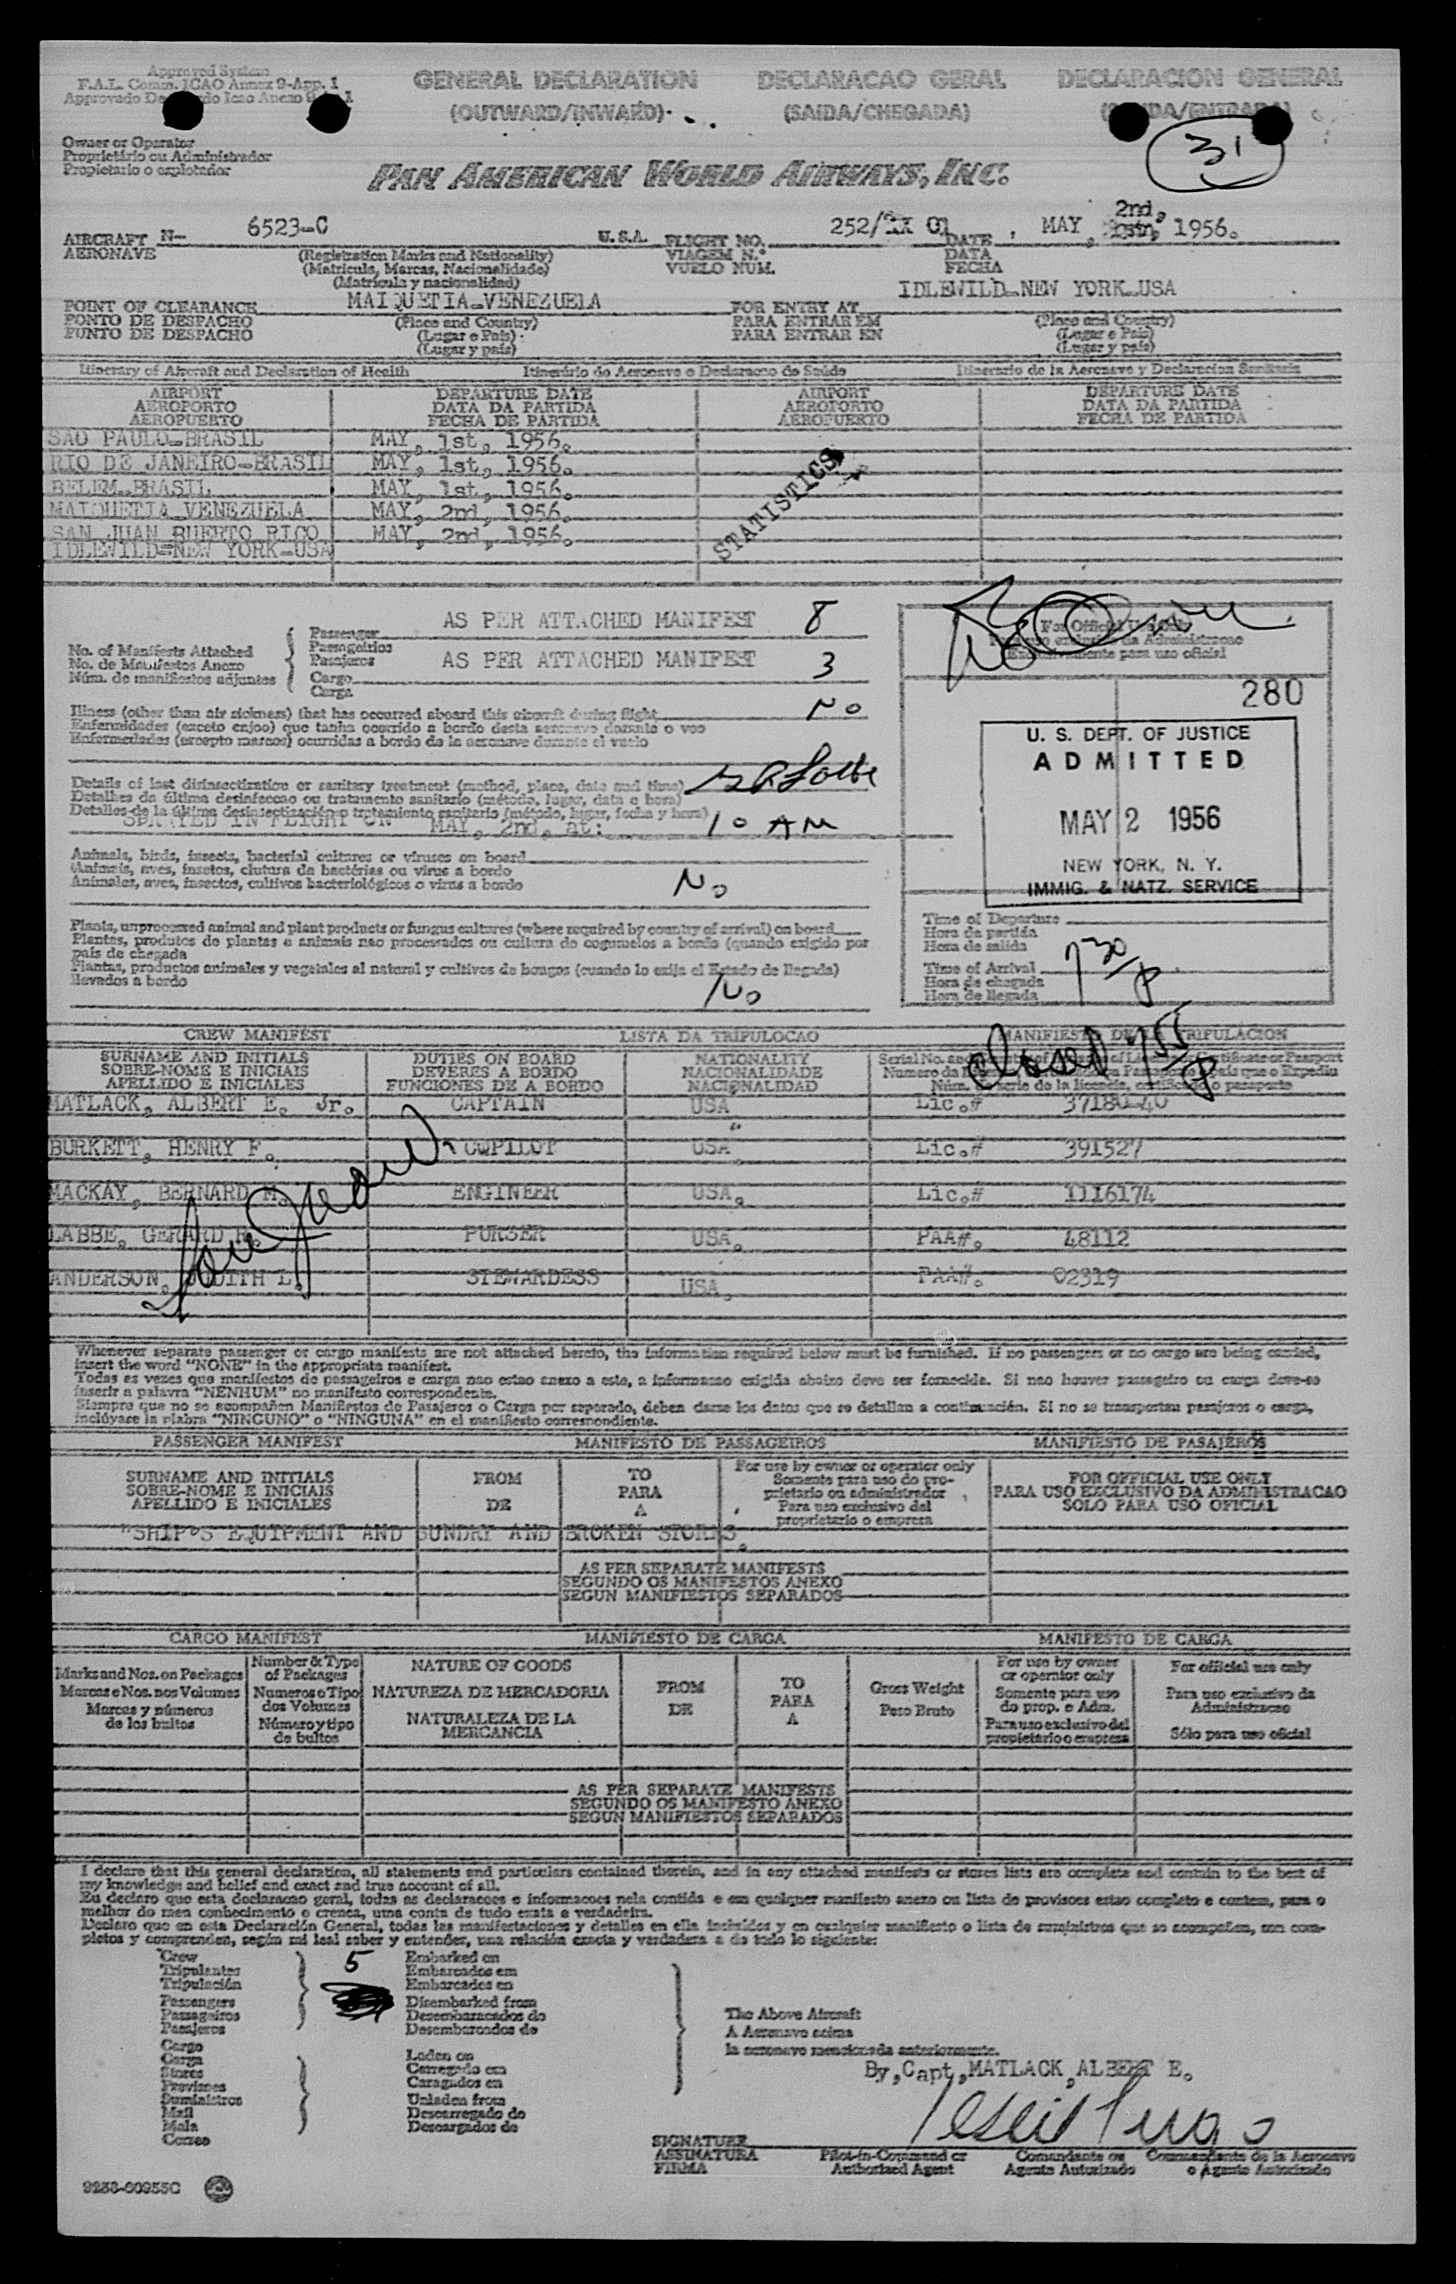 Approved System
F.A.L. Comm. ICAO Annex 9-App. 1
GENERAL DECLARATION DECLARACAO GERAL DECLARACION GENERAL
(OUTWARD/INWARD) (SAIDA/CHEGADA)
31
Owner or Operator
Proprietário ou Administrador
Propietario o explotador
PAN AMERICAN WORLD AIRWAYS, INC.
AIRCRAFT N- 6523-C U.S.A. FLIGHT NO. 252/ 01 DATE, MAY, 2nd, 1956.
AERONAVE (Registration Marks and Nationality) VIAGEM N.° DATA
(Matricula, Marcas, Nacionalidade) VUELO NUM. FECHA
(Matricula y nacionalidad)
POINT OF CLEARANCE MAIQUETIA-VENEZUELA FOR ENTRY AT IDLEWILD-NEW YORK-USA
PONTO DE DESPACHO (Place and Country) PARA ENTRAR EM (Place and Country)
PUNTO DE DESPACHO (Lugar e País) PARA ENTRAR EN (Lugar e País)
(Lugar y país) (Lugar y país)
Itinerary of Aircraft and Declaration of Health Itinerário do Aeronave e Declaracao de Saúde Itinerario de la Aeronave y Declaracion Sanitaria
AIRPORT DEPARTURE DATE AIRPORT DEPARTURE DATE
AEROPORTO DATA DA PARTIDA AEROPORTO DATA DA PARTIDA
AEROPUERTO FECHA DE PARTIDA AEROPUERTO FECHA DE PARTIDA
SAO PAULO-BRASIL MAY, 1st, 1956.
RIO DE JANEIRO-BRASIL MAY, 1st, 1956.
BELEM-BRASIL MAY, 1st, 1956.
MAIQUETIA VENEZUELA MAY, 2nd, 1956.
SAN JUAN PUERTO RICO MAY, 2nd, 1956.
IDLEWILD-NEW YORK-USA
STATISTICS
No. of Manifests Attached
No. de Manifestos Anexo
Núm. de manifiestos adjuntos
Passenger AS PER ATTACHED MANIFEST 8
Passageitios
Pasajeros
Cargo AS PER ATTACHED MANIFEST 3
Carga
For Official Use Only
Para uso exclusivo da Administracao
Exclusivamente para uso oficial
280
Illness (other than air sickness) that has occurred aboard this aircraft during flight No
Enfermidades (exceto enjoo) que tenha ocorrido a bordo desta aeronave durante o voo
Enfermedades (excepto mareos) ocurridas a bordo de la aeronave durante el vuelo
U. S. DEPT. OF JUSTICE
ADMITTED
MAY 2 1956
NEW YORK, N. Y.
IMMIG. & NATZ. SERVICE
Details of last disinsectization or sanitary treatment (method, place, date and time)
Detalhes da última desinfeccao ou tratamento sanitario (método, lugar, data e hora)
Detalles de la última desinsectización o tratamiento sanitario (método, lugar, fecha y hora)
SPRAYED IN FLIGHT ON MAY, 2nd, at: 10 AM
Animals, birds, insects, bacterial cultures or viruses on board
Animais, aves, insetos, clutura de bactérias ou virus a bordo
Animales, aves, insectos, cultivos bacteriológicos o virus a bordo No
Plants, unprocessed animal and plant products or fungus cultures (where required by country of arrival) on board
Plantas, produtos de plantas e animais nao processados ou cultura de cogumelos a bordo (quando exigido por
país de chegada
Plantas, productos animales y vegetales al natural y cultivos de hongos (cuando lo exija el Estado de llegada)
llevados a bordo No
Time of Departure
Hora de partida
Hora de salida
Time of Arrival 7 30/P
Hora de chegada
Hora de llegada
closed 7 55/P
CREW MANIFEST LISTA DA TRIPULOCAO MANIFIESTO DE LA TRIPULACION
SURNAME AND INITIALS DUTIES ON BOARD NATIONALITY
SOBRE-NOME E INICIAIS DEVERES A BORDO NACIONALIDADE
APELLIDO E INICIALES FUNCIONES DE A BORDO NACIONALIDAD
MATLACK, ALBERT E. Jr. CAPTAIN USA Lic.# 3718040
BURKETT, HENRY F. COPILOT USA Lic.# 391527
MACKAY, BERNARD M. ENGINEER USA. Lic.# 1116174
LABBE, GERARD R. PURSER USA. PAA#. 48112
ANDERSON, JUDITH L. STEWARDESS USA. PAA#. 02319
Whenever separate passenger or cargo manifests are not attached hereto, the information required below must be furnished. If no passengers or no cargo are being carried,
insert the word "NONE" in the appropriate manifest.
Todas as vezes que manifestos de passageiros e carga nao estao anexo a este, a informacao exigida abaixo deve ser fornecida. Si nao houver passageiro ou carga deve-se
inserir a palavra "NENHUM" no manifesto correspondente.
Siempre que no se acompañen Manifiestos de Pasajeros o Carga por separado, deben darse los datos que se detallan a continuación. Si no se transportan pasajeros o carga,
inclúyase la plabra "NINGUNO" o "NINGUNA" en el manifiesto correspondiente.
PASSENGER MANIFEST MANIFESTO DE PASSAGEIROS MANIFIESTO DE PASAJEROS
SURNAME AND INITIALS FROM TO For use by owner or operator only FOR OFFICIAL USE ONLY
SOBRE-NOME E INICIAIS DE PARA Somente para uso do pro- PARA USO EXCLUSIVO DA ADMINISTRACAO
APELLIDO E INICIALES A prietario ou administrador SOLO PARA USO OFICIAL
Para uso exclusivo del
proprietario o empresa
"SHIP'S EQUIPMENT AND SUNDRY AND BROKEN STORES.
AS PER SEPARATE MANIFESTS
SEGUNDO OS MANIFESTOS ANEXO
SEGUN MANIFIESTOS SEPARADOS
CARGO MANIFEST MANIFIESTO DE CARGA MANIFESTO DE CARGA
Marks and Nos. on Packages Number & Type of Packages NATURE OF GOODS FROM TO Gross Weight For use by owner or operator only For official use only
Marcas e Nos. nos Volumes Numeros o Tipo dos Volumes NATUREZA DE MERCADORIA DE PARA Peso Bruto Somente para uso do prop. e Adm. Para uso exclusivo da Administracao
Marcas y números de los bultos Número y tipo de bultos NATURALEZA DE LA MERCANCIA A Para uso exclusivo del propietario o empresa Sólo para uso oficial
AS PER SEPARATE MANIFESTS
SEGUNDO OS MANIFESTO ANEXO
SEGUN MANIFIESTOS SEPARADOS
I declare that this general declaration, all statements and particulars contained therein, and in any attached manifests or stores lists are complete and contain to the best of
my knowledge and belief and exact and true account of all.
Eu declaro que esta declaracao geral, todas as declaracoes e informacoes nela contida e em qualquer manifesto anexo ou lista de provisoes estao completo e contem, para o
melhor do meu conhecimento e crenca, uma conta de tudo exata e verdadeira.
Declaro que en esta Declaración General, todas las manifestaciones y detalles en ella incluidos y en cualquier manifiesto o lista de suministros que se acompañen, son com-
pletos y comprenden, según mi leal saber y entender, una relación exacta y verdadera a de todo lo siguiente:
Crew 5 Embarked on
Tripulantes Embarcados em
Tripulación Embarcados en
Passengers Disembarked from
Passageiros Desembaracados do
Pasajeros Desembarcados de
The Above Aircraft
A Aeronave acima
la aeronave mencionada anteriormente.
Cargo Laden on
Carga Carregado em
Stores Caragados en
Provisoes Unladen from
Suministros Descarregado do
Mail Descargados de
Mala
Correo
By, Capt, MATLACK, ALBERT E.
SIGNATURE
ASSINATURA Pilot-in-Command or Comandante ou Commandante de la Aeronave
FIRMA Authorized Agent Agente Autorizado o Agente Autorizado
9238-00955C